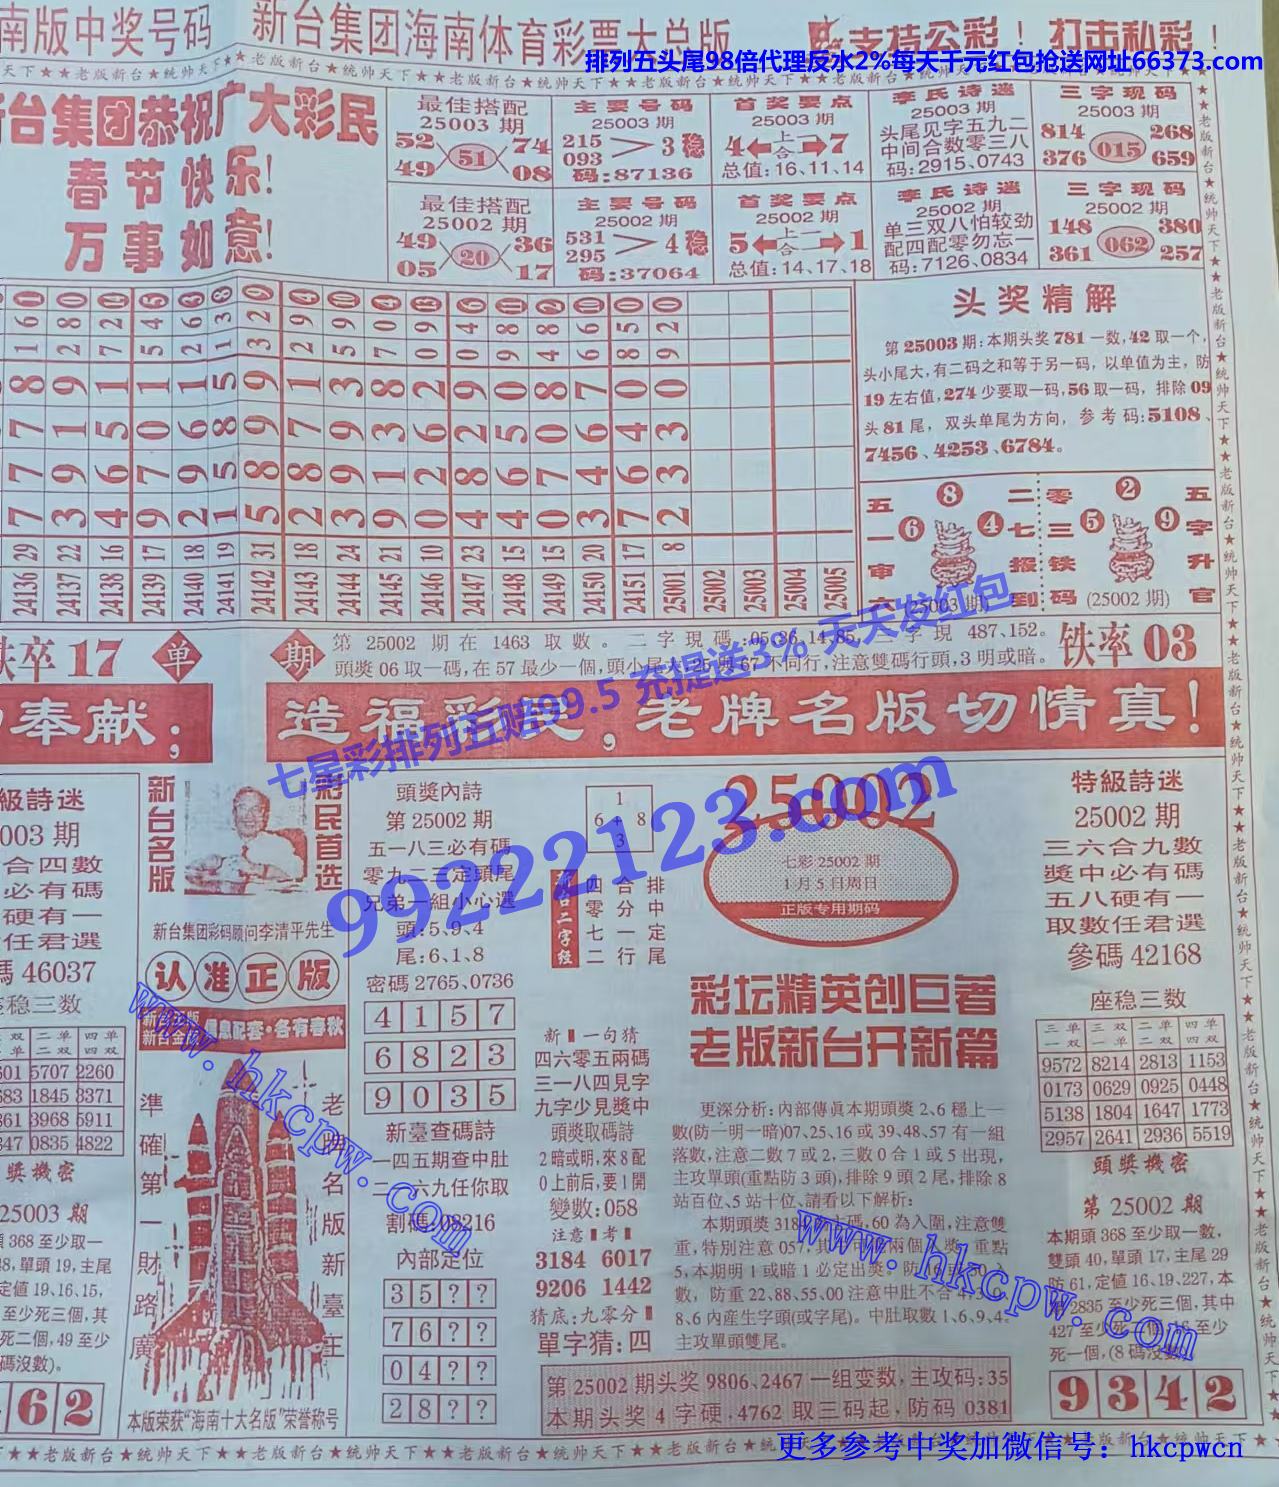 南版中奖号码 新台集团海南体育彩票大总版 支持公彩！打击私彩！
排列五头尾98倍代理反水2%每天千元红包抢送网址66373.com
台集团恭祝广大彩民
春节快乐!
万事如意!
最佳搭配
25003 期
52 74
51
49 08
主要号码
25003 期
215
093 3 稳
码:87136
首奖要点
25003 期
4 上一合 7
总值:16,11,14
李氏诗谜
25003 期
头尾见字五九二
中间合数零三八
码:2915、0743
三字现码
25003 期
814 268
015
376 659
最佳搭配
25002 期
49 36
20
05 17
主要号码
25002 期
531
295 4 稳
码:37064
首奖要点
25002 期
5 上二合 1
总值:14,17,18
李氏诗谜
25002 期
单三双八怕较劲
配四配零勿忘一
码:7126、0834
三字现码
25002 期
148 380
062
361 257
24136 29 7 7 7 8
24137 22 3 9 1 9
24138 16 4 6 5 1
24139 17 9 7 0 1
24140 18 2 9 6 1
24141 19 1 5 8 5
24142 31 5 8 9 9
24143 18 2 8 7 1
24144 24 3 9 9 3
24145 21 9 1 3 8
24146 10 0 2 6 2
24147 23 4 8 2 9
24148 15 4 6 5 0
24149 15 0 7 0 8
24150 20 3 4 6 7
24151 17 7 6 4 0
25001 8 2 3 3 0
25002
25003
25004
25005
头奖精解
第25003期:本期头奖781一数,42取一个,
头小尾大,有二码之和等于另一码,以单值为主,防
19左右值,274少要取一码,56取一码,排除09
头81尾,双头单尾为方向,参考码:5108、
7456、4253、6784。
五一审六 8 6 4 二七报到
(25003期)
零三铁码 2 5 9 五字升官
(25002期)
铁卒17 单 期
第25002期在1463取數。二字現碼:05,36,14,85,三字現487,152。
頭獎06取一碼,在57最少一個,頭小尾大,25與67不同行,注意雙碼行頭,3明或暗。
铁率03
七星彩排列五赔99.5 充提送3% 天天发红包
奉献; 造福彩民,老牌名版切情真!
99222123.com
級詩迷
003期
合四數
必有碼
硬有一
任君選
碼46037
座稳三数
601 5707 2260
583 1845 3371
361 3968 5911
347 0835 4822
獎機密
25003期
頭368至少取一
38,單頭19,主尾
定值19,16,15,
至少死三個,其
死二個,49至少
碼没數)。
6 2
新台名版
彩民首选
新台集团彩码顾问李清平先生
认准正版
準確第一財路廣
老牌名版新臺王
本版荣获“海南十大名版”荣誉称号
頭獎內詩
第25002期
五一八三必有碼
零九二三定頭尾
兄弟一組小心選
頭:5、9、4
尾:6、1、8
密碼2765、0736
4 1 5 7
6 8 2 3
9 0 3 5
新臺查碼詩
一四五期查中肚
二一六九任你取
割碼:08216
內部定位
3 5 ? ?
7 6 ? ?
0 4 ? ?
2 8 ? ?
1
6 + 8
3
新台二字经
四零七二
合分一行
排中定尾
新一句猜
四六零五兩碼
三一八四見字
九字少見獎中
頭獎取碼詩
2暗或明,來8配
0上前后,要1開
變數:058
注意考
3184 6017
9206 1442
猜底:九零分
單字猜:四
25002
七彩25002期
1月5日周日
正版专用期码
彩坛精英创巨著
老版新台开新篇
更深分析:內部傳眞本期頭獎2、6穩上一
數(防一明一暗)07、25、16或39、48、57有一組
落數,注意二數7或2,三數0合1或5出現,
主攻單頭(重點防3頭),排除9頭2尾,排除8
站百位、5站十位、請看以下解析:
本期頭獎318 碼,60為入圍,注意雙
重,特別注意057,其 可 兩個 獎,重點
5,本期明1或暗1必定出獎。防16或 入
數,防重22、88、55、00注意中肚不合
8、6內産生字頭(或字尾)。中肚取數1、6、9、4。
主攻單頭雙尾。
特級詩迷
25002期
三六合九數
獎中必有碼
五八硬有一
取數任君選
參碼42168
座稳三数
三单一双 三双一单 二单二单 四单四双
9572 8214 2813 1153
0173 0629 0925 0448
5138 1804 1647 1773
2957 2641 2936 5519
頭獎機密
第25002期
本期頭368至少取一數,
雙頭40,單頭17,主尾29
防61,定值16、19、227,本
2835至少死三個,其中
427至少死 個, 至少
死一個,(8碼没數)
9 3 4 2
第25002期头奖9806、2467一组变数,主攻码:35
本期头奖4字硬,4762取三码起,防码0381
www.hkcpw.com
www.hkcpw.com
更多参考中奖加微信号：hkcpwcn